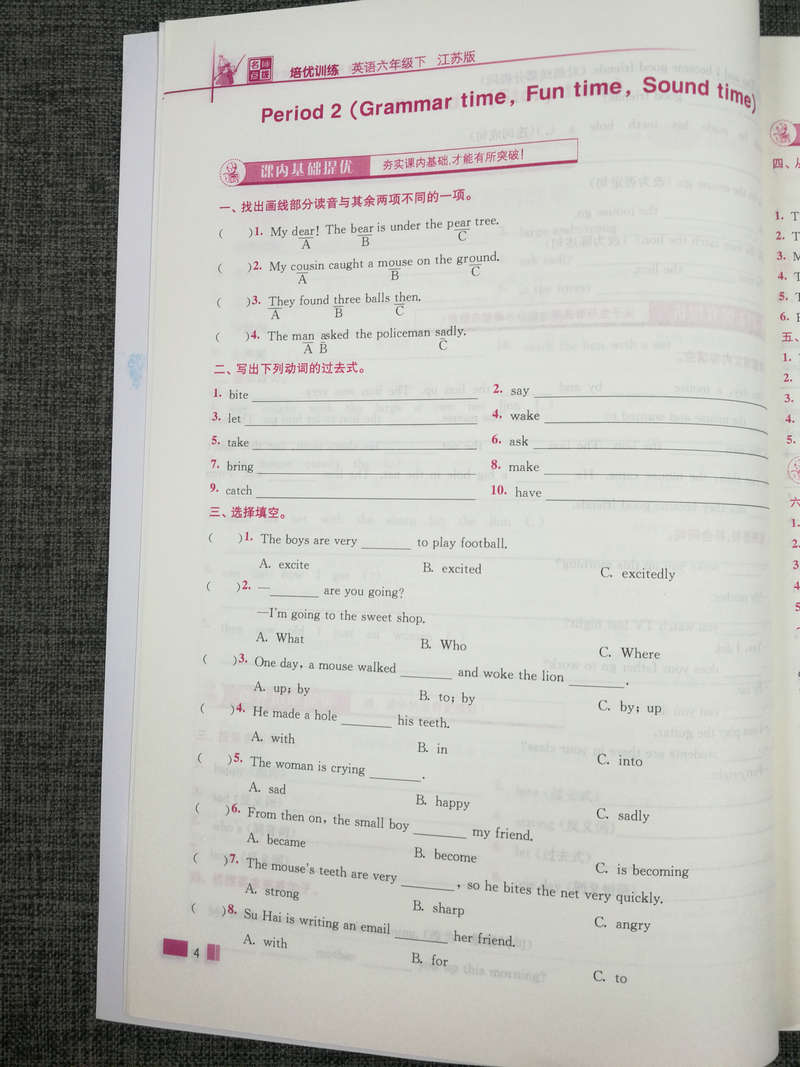 名师点拨 培优训练 英语六年级下 江苏版
Period 2 (Grammar time, Fun time, Sound time)
课内基础提优 夯实课内基础,才能有所突破!
一、找出画线部分读音与其余两项不同的一项。
( )1. My dear! The bear is under the pear tree.
A B C
( )2. My cousin caught a mouse on the ground.
A B C
( )3. They found three balls then.
A B C
( )4. The man asked the policeman sadly.
A B C
二、写出下列动词的过去式。
1. bite 2. say
3. let 4. wake
5. take 6. ask
7. bring 8. make
9. catch 10. have
三、选择填空。
( )1. The boys are very ________ to play football.
A. excite B. excited C. excitedly
( )2. —________ are you going?
—I'm going to the sweet shop.
A. What B. Who C. Where
( )3. One day, a mouse walked ________ and woke the lion ________.
A. up; by B. to; by C. by; up
( )4. He made a hole ________ his teeth.
A. with B. in C. into
( )5. The woman is crying ________.
A. sad B. happy C. sadly
( )6. From then on, the small boy ________ my friend.
A. became B. become C. is becoming
( )7. The mouse's teeth are very ________, so he bites the net very quickly.
A. strong B. sharp C. angry
( )8. Su Hai is writing an email ________ her friend.
A. with B. for C. to
4
四、
1. T
2. T
3. M
4. T
5. T
6.
五、
1.
2.
3.
4.
5.
六
1.
2.
3
4
5